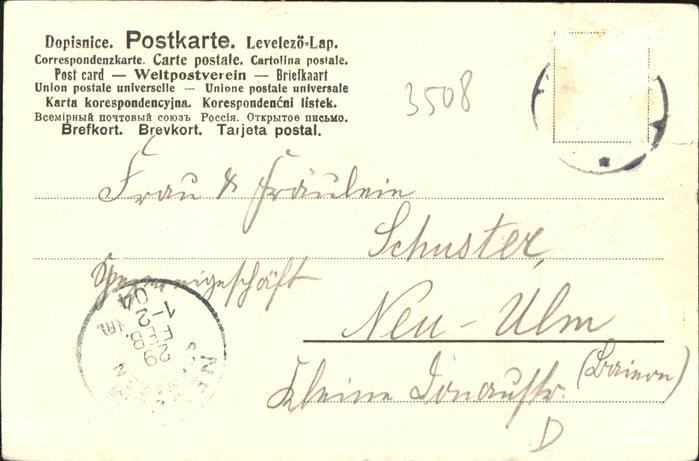 Dopisnice. Postkarte. Levelező-Lap.
Correspondenzkarte. Carte postale. Cartolina postale.
Post card — Weltpostverein — Briefkaart
Union postale universelle — Unione postale universale
Karta korespondencyjna. Korespondenční lístek.
Всемірный почтовый союзъ Россія. Открытое письмо.
Brefkort. Brevkort. Tarjeta postal.
3508
Frau & Fräulein
Schuster,
Spezereigeschäft
Neu-Ulm
Kleine Donaustr. (Baiern)
D
29 FEB
1-2 NM
04